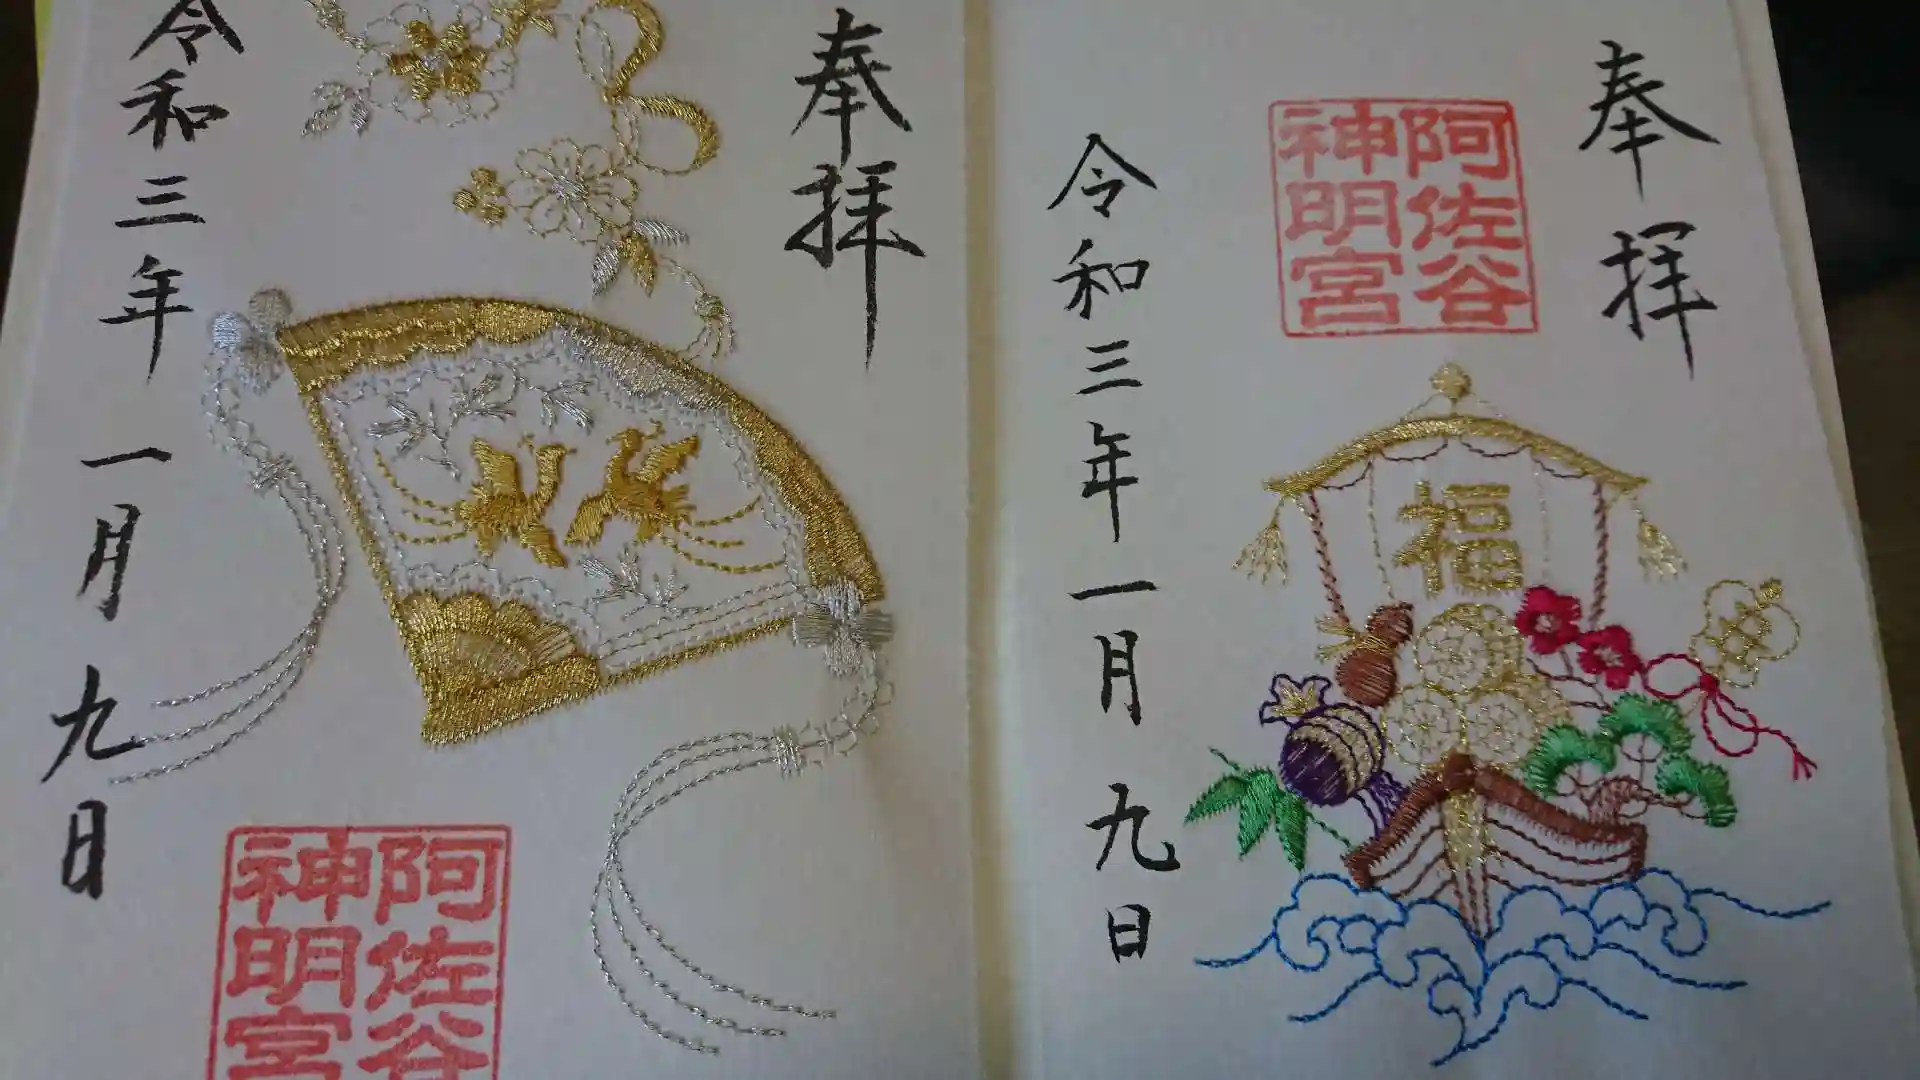 奉拝
阿佐谷
神明宮
福
令和三年一月九日
奉拝
令和三年一月九日
阿佐谷
神明宮